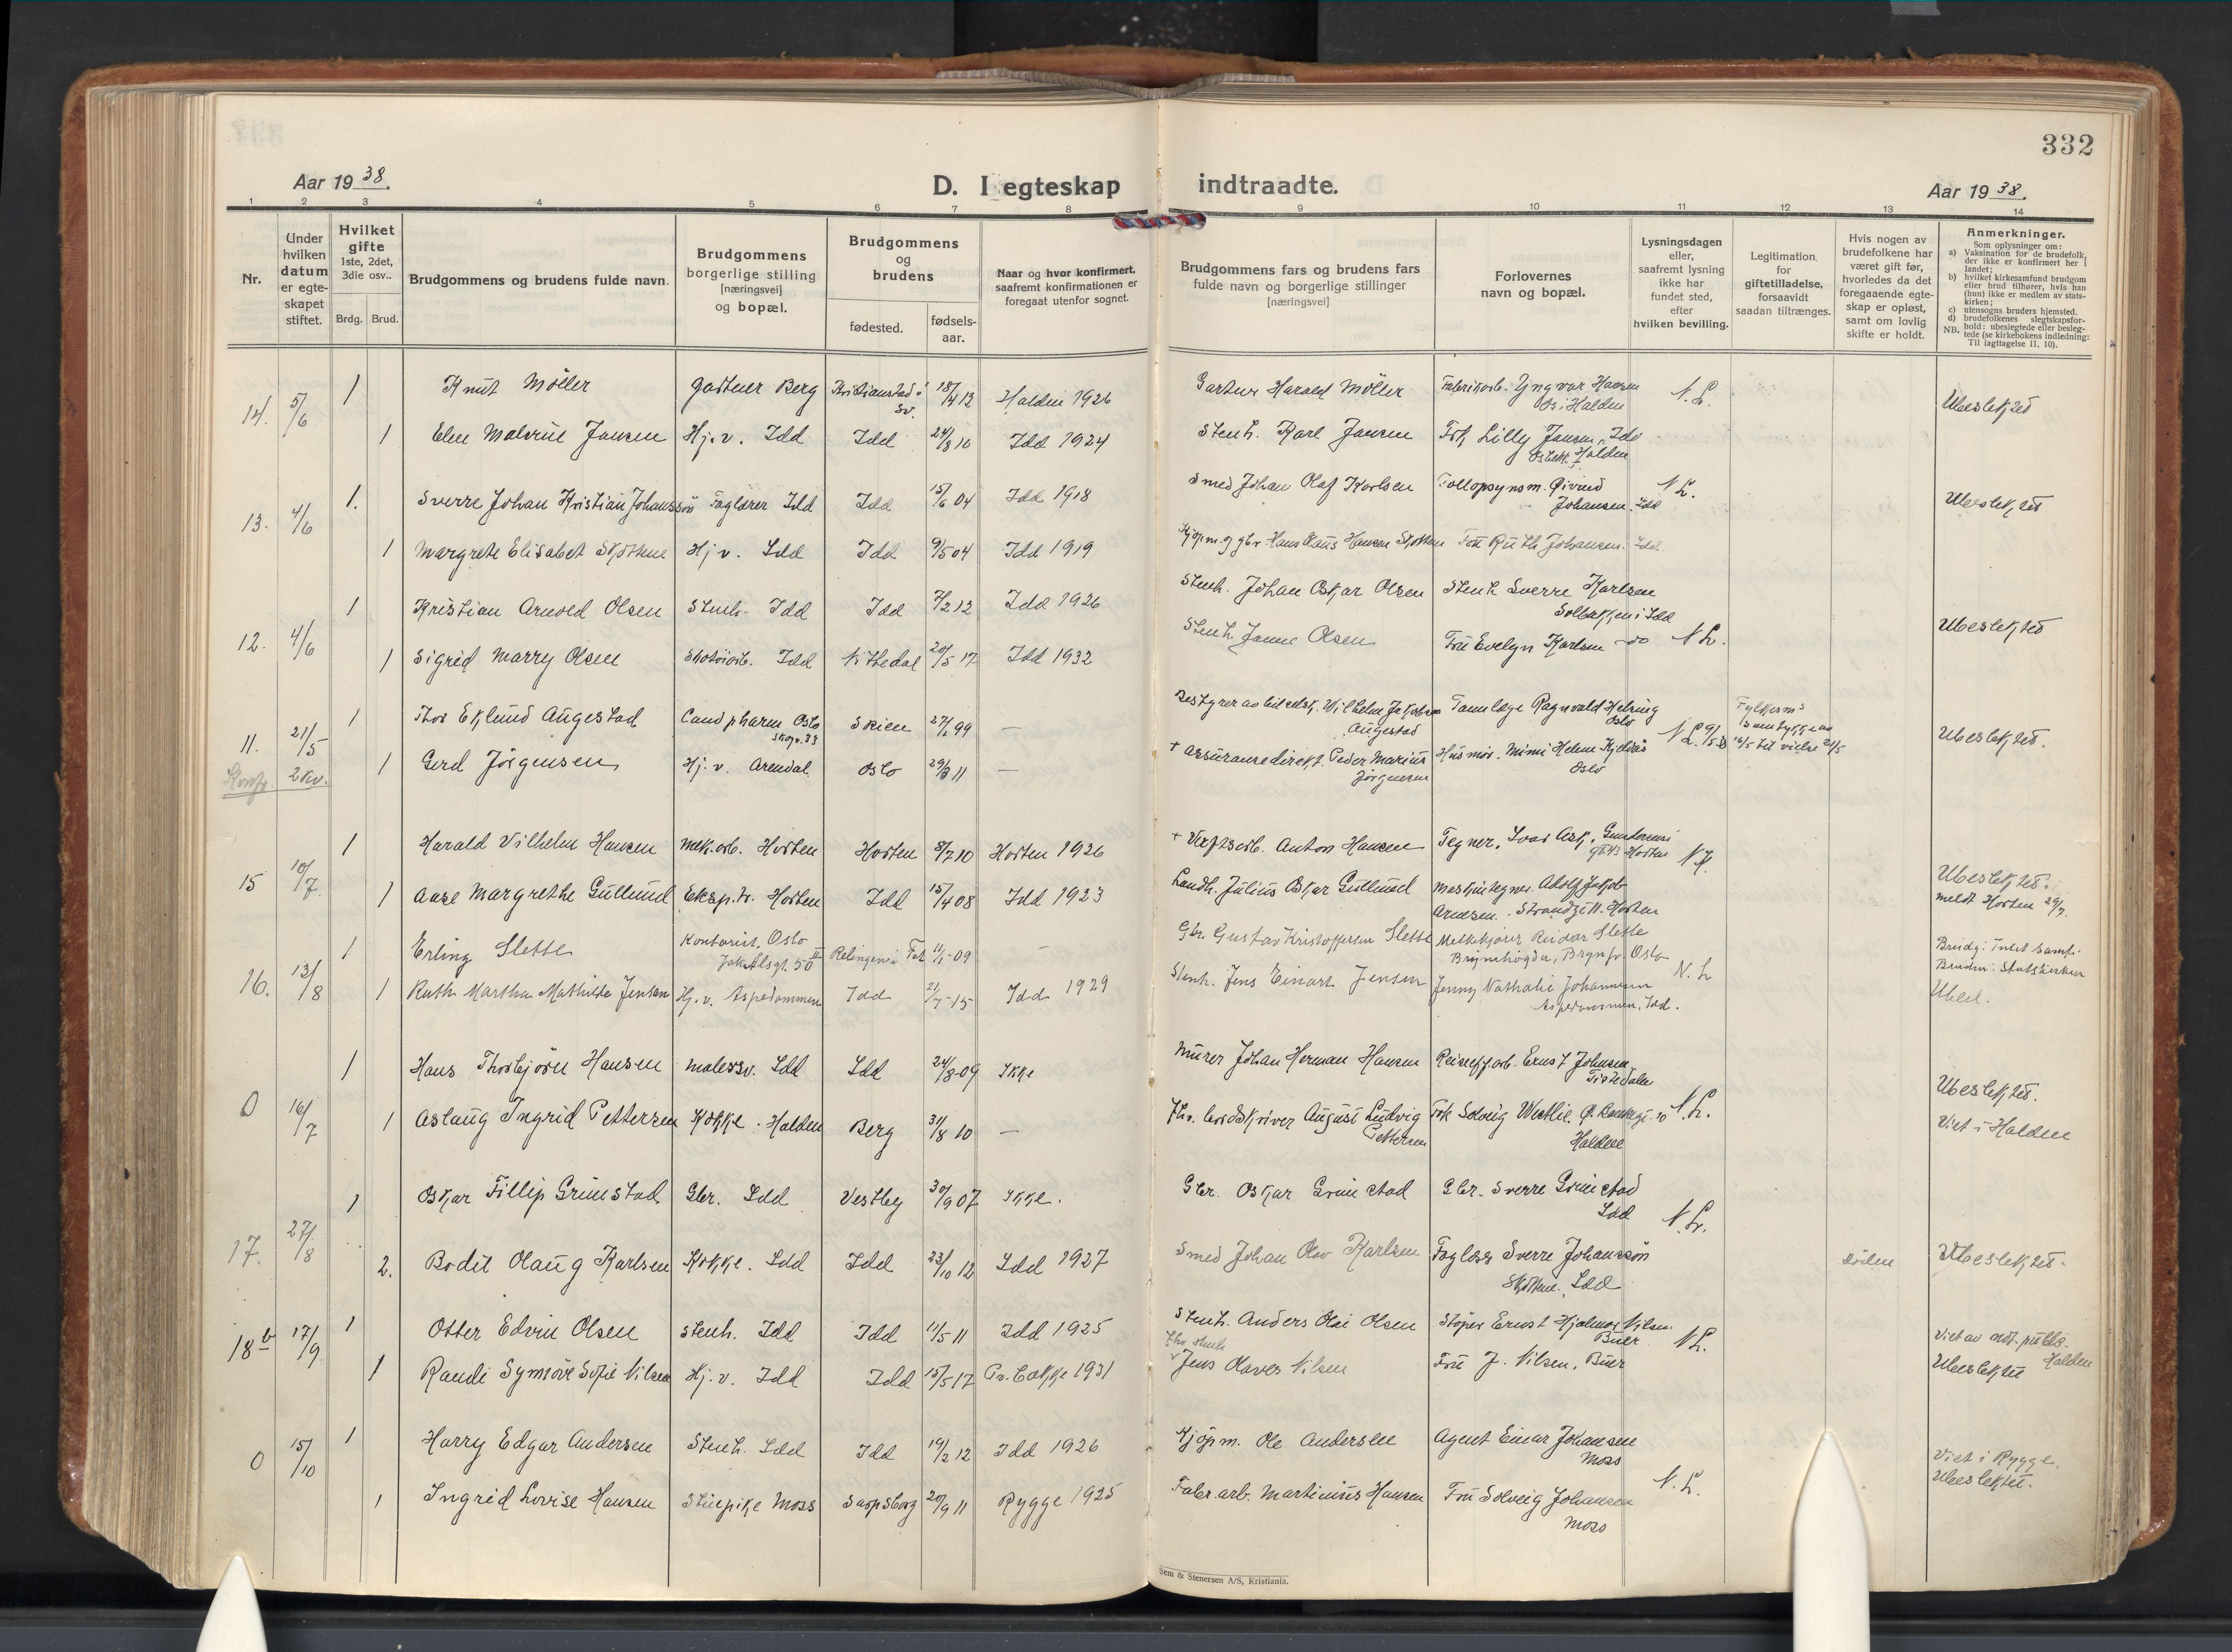 332
Aar 19 38.
D. I egteskap indtraadte.
Aar 19 38.
1 2 3 4 5 6 7 8 9 10 11 12 13 14
Nr.
Under hvilken datum er egteskapet stiftet.
Hvilket gifte 1ste, 2det, 3die osv..
Brdg. Brud.
Brudgommens og brudens fulde navn.
Brudgommens borgerlige stilling [næringsvei] og bopæl.
Brudgommens og brudens
fødested.
fødselsaar.
Naar og hvor konfirmert, saafremt konfirmationen er foregaat utenfor sognet.
Brudgommens fars og brudens fars fulde navn og borgerlige stillinger [næringsvei]
Forlovernes navn og bopæl.
Lysningsdagen eller, saafremt lysning ikke har fundet sted, efter hvilken bevilling.
Legitimation for giftetilladelse, forsaavidt saadan tiltrænges.
Hvis nogen av brudefolkene har været gift før, hvorledes da det foregaaende egteskap er opløst, samt om lovlig skifte er holdt.
Anmerkninger.
Som oplysninger om:
a) Vaksination for de brudefolk, der ikke er konfirmert her i landet;
b) hvilket kirkesamfund brudgom eller brud tilhører, hvis han (hun) ikke er medlem av statskirken;
c) utensogns bruders hjemsted.
d) brudefolkenes slegtskapsforhold: ubeslegtede eller beslegtede (se kirkebokens indledning: Til iagttagelse II. 10).
NB.
14. 5/6 1 Knut Möller gartner Berg Kristianstad i Sv. 18/4 12 Halden 1926 Gartner Harald Möller Fabrikarb. Yngvar Hansen Os i Halden N.L. Ubeslektet
1 Elen Malvine Jansen Hj.v. Idd Idd 24/8 10 Idd 1924 Stenh. Karl Jansen Frk Lilly Jansen, Idd Halden
13. 4/6 1. Sverre Johan Kristian Johanssön Faglærer Idd Idd 15/6 04 Idd 1918 Smed Johan Olaf Karlsen Tollopsynsm. Øivind Johansen. Idd N.L. Ubeslektet
1 Margrete Elisabet Skjöttene Hj v. Idd Idd 9/5 04 Idd 1919 Kjøpm. og gbr. Hans Olaus Hansen Fru Ruth Johansen. Idd.
12. 4/6 1 Kristian Arnold Olsen Stenh. Idd Idd 7/2 12 Idd 1926 Stenh. Johan Oskar Olsen Stenh Sverre Karlsen i Idd Ubeslektet
1 Sigrid Marry Olsen Skotöiarb. Idd Nittedal 20/5 17 Idd 1932 Stenh. Olsen Fru Evelyn Karlsen do N.L.
11. 21/5 1 Thor Eklund Augestad Cand pharm Oslo Skogv. 33 Skien 27/ 99 — Wilhelm Jakobsen Augestad Tannlæge Ragnvald Oslo N.L. Fylkesm's samtykke av 16/5 til vielse 21/5 Ubeslektet.
2 kv. 1 Gerd Jörgensen Hj. v. Arendal Oslo 29/8 11 — + Assuransedirekt. Peder Marius Jörgensen Husmor. Mimi Helene Oslo
15 10/7 1 Harald Vilhelm Hansen Mek. arb. Horten Horten 8/7 10 Horten 1926 + Verftsarb. Anton Hansen Tegner. Horten Ubeslektet.
1 Aase Margrethe Gullund Eksp.tr. Horten Idd 15/4 08 Idd 1923 Landh. Julius Oskar Gullund Maskintegner. Adolf Jakob Arnesen. Strandgt 11. Horten meldt Horten 29/7.
16. 13/8 1 Erling Slette Kontorist, Oslo Relingen i Fet 11/1-09 — Gbr. Gustav Kristoffersen Slette Melkekjører Reidar Slette Oslo Brudg: Intet samf. Bruden: Statskirken
1 Ruth Martha Mathilde Jensen Hj. v. Aspedammen Idd 21/7-15 Idd 1929 Stenh. Jens Einart Jensen Jenny Nathalie Johannesen Aspedammen, Idd. N. L Ubesl.
0 16/7 1 Hans Thorbjörn Hansen malersv. Idd Idd 24/8-09 Ikke Murer Johan Herman Hansen Ernst Johnsen Tistedalen Ubeslektet.
1 Aslaug Ingrid Pettersen Kokke. Halden Berg 31/8 10 — August Ludvig Pettersen Frk Solveig Halden N.L. Viet i Halden
17. 27/8 1 Oskar Fillip Grimstad Gbr. Idd Vestby 30/9 07 Ikke. Gbr. Oskar Grimstad Gbr. Sverre Grimstad Idd N.L.
2. Bodil Olaug Karlsen Kokke. Idd Idd 23/10 12 Idd 1927 Smed Johan Olav Karlsen Faglærer Sverre Johanssön Skjöttene, Idd Ubeslektet.
18 b 17/9 1 Otter Edvin Olsen Stenh. Idd Idd 11/5 11 Idd 1925 Stenh. Anders Olai Olsen Støper Ernst Hjalmar Nilsen Buer N.L. Viet av not. publ. Halden
1 Randi Synnöve Sofie Nilsen Hj. v. Idd Idd 15/5 17 Pr. bakke 1931 Jens Olaves Nilsen Fru J. Nilsen, Buer Ubeslektet
0 15/10 1 Harry Edgar Andersen Stenh. Idd Idd 19/2 12 Idd 1926 Kjöpm. Ole Andersen Agent Einar Johansen Moss Viet i Rygge.
1 Ingrid Lovise Hansen Stuepike Moss Sarpsborg 20/9 11 Rygge 1925 Fabr. arb. Martinius Hansen Fru Solveig Johansen Moss N.L. Ubeslektet.
Sem & Stenersen A/S, Kristiania.